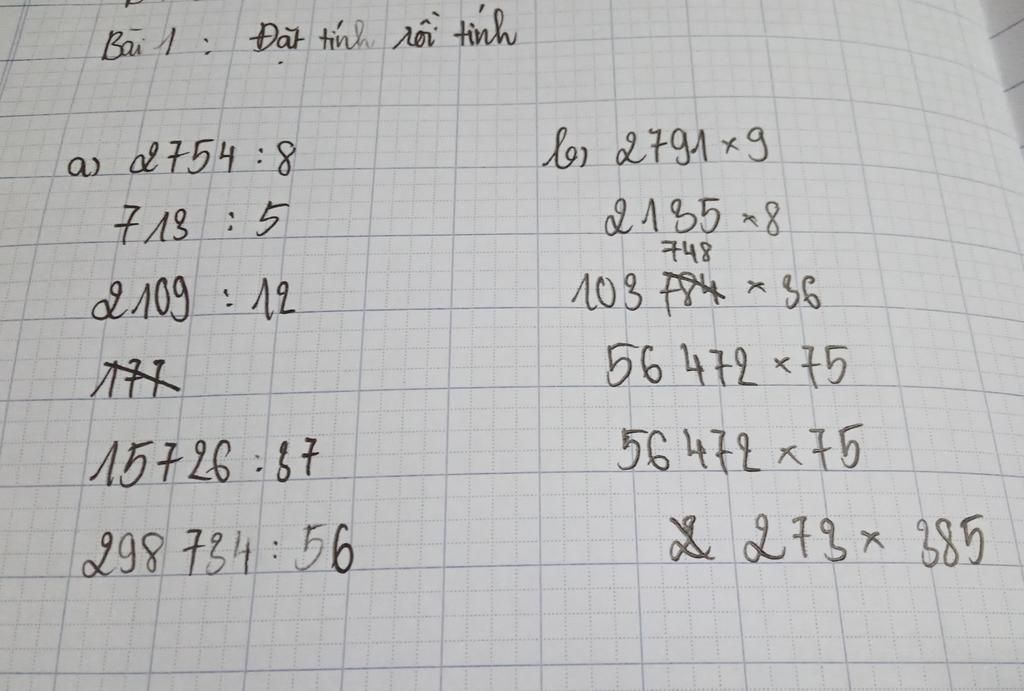 Bài 1 : Đặt tính rồi tính
a) 2754 : 8
713 : 5
2109 : 12
177
15726 : 37
298 734 : 56
b) 2791 × 9
2135 × 8
748
103 784 × 36
56 472 × 75
56 472 × 75
2 273 × 385